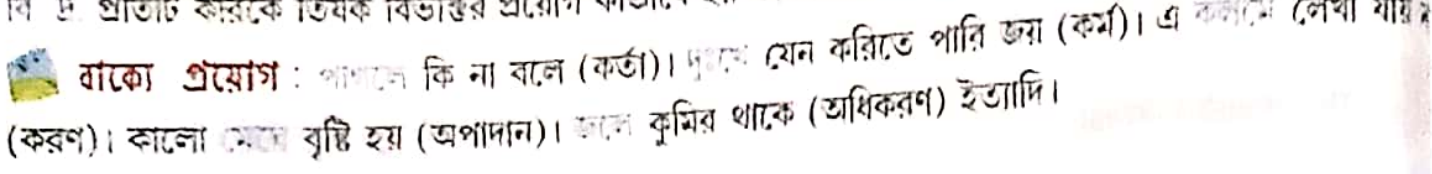 প্রতিটি কারকে তির্যক বিভক্তির প্রয়োগ
বাক্যে প্রয়োগ : পাগলে কি না বলে (কর্তা)। যেন করিতে পারি জয় (কর্ম)। এ কলমে লেখা যায়
(করণ)। কালো মেঘে বৃষ্টি হয় (অপাদান)। জলে কুমির থাকে (অধিকরণ) ইত্যাদি।